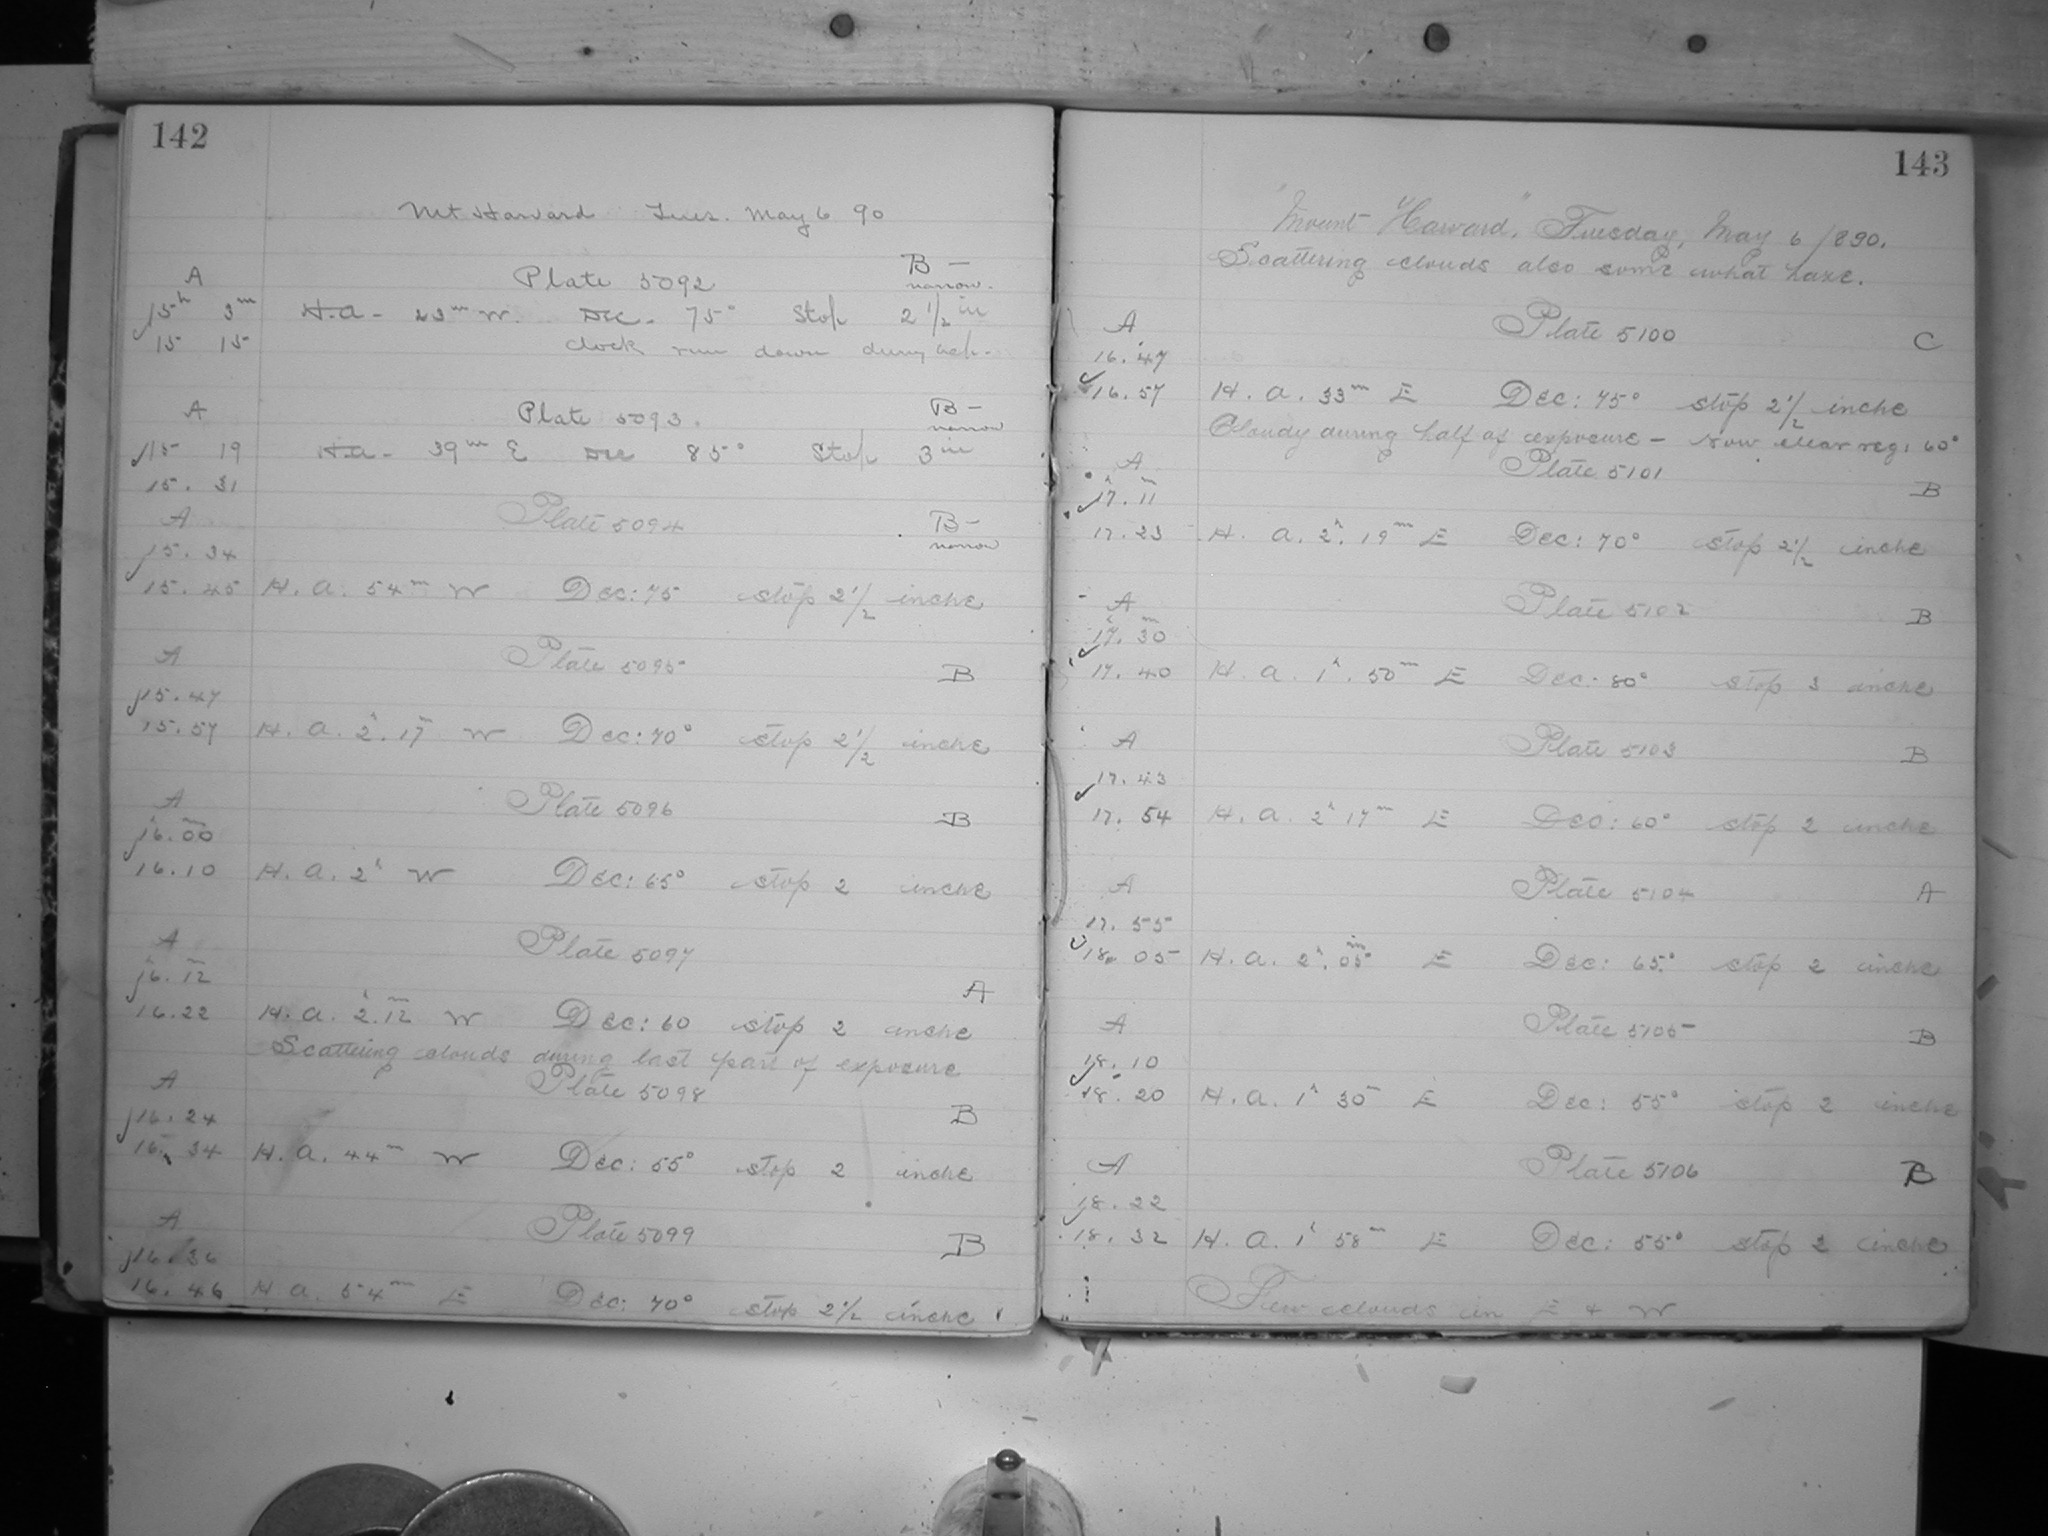 142
Mt Harvard Tues. May 6 90
A Plate 5092 B – narrow.
15h 3m H.a - 23m W. Dec - 75° Stop 2 1/2 in
15 15 clock run down during
A Plate 5093. B – narrow
15 19 H.a - 39m E Dec 85° Stop 3 in
15. 31
A Plate 5094 B – narrow
15. 34
15. 45 H. a. 54m W Dec: 75 stop 2 1/2 inche
A Plate 5095 B
15. 47
15. 57 H. a. 2h. 17m W Dec: 70° stop 2 1/2 inche
A Plate 5096 B
16h. 00m
16. 10 H. a. 2h W Dec: 65° stop 2 inche
A Plate 5097 A
16h. 12m
16. 22 H. a. 2h. 12m W Dec: 60 stop 2 inche
Scattering clouds during last part of exposure
A Plate 5098 B
16. 24
16. 34 H. a. 44m W Dec: 55° stop 2 inche
A Plate 5099 B
16. 36
16. 46 H. a. 54m E Dec: 70° stop 2 1/2 inche
143
"Mount Harvard", Tuesday, May 6 1890.
Scattering clouds also some what haze.
A Plate 5100 C
16. 47
16. 57 H. a. 33m E Dec: 75° stop 2 1/2 inche
Cloudy during half of exposure – now clear reg. 60°
A Plate 5101 B
17h. 11m
17. 23 H. a. 2h. 19m E Dec: 70° stop 2 1/2 inche
A Plate 5102 B
17h. 30m
17. 40 H. a. 1h. 50m E Dec: 80° stop 3 inche
A Plate 5103 B
17. 43
17. 54 H. a. 2h 17m E Dec: 60° stop 2 inche
A Plate 5104 A
17. 55
18. 05 H. a. 2h. 05m E Dec: 65° stop 2 inche
A Plate 5105 B
18. 10
18. 20 H. a. 1h 30m E Dec: 55° stop 2 inche
A Plate 5106 B
18. 22
18. 32 H. a. 1h 58m E Dec: 55° stop 2 inche
Few clouds in E + W